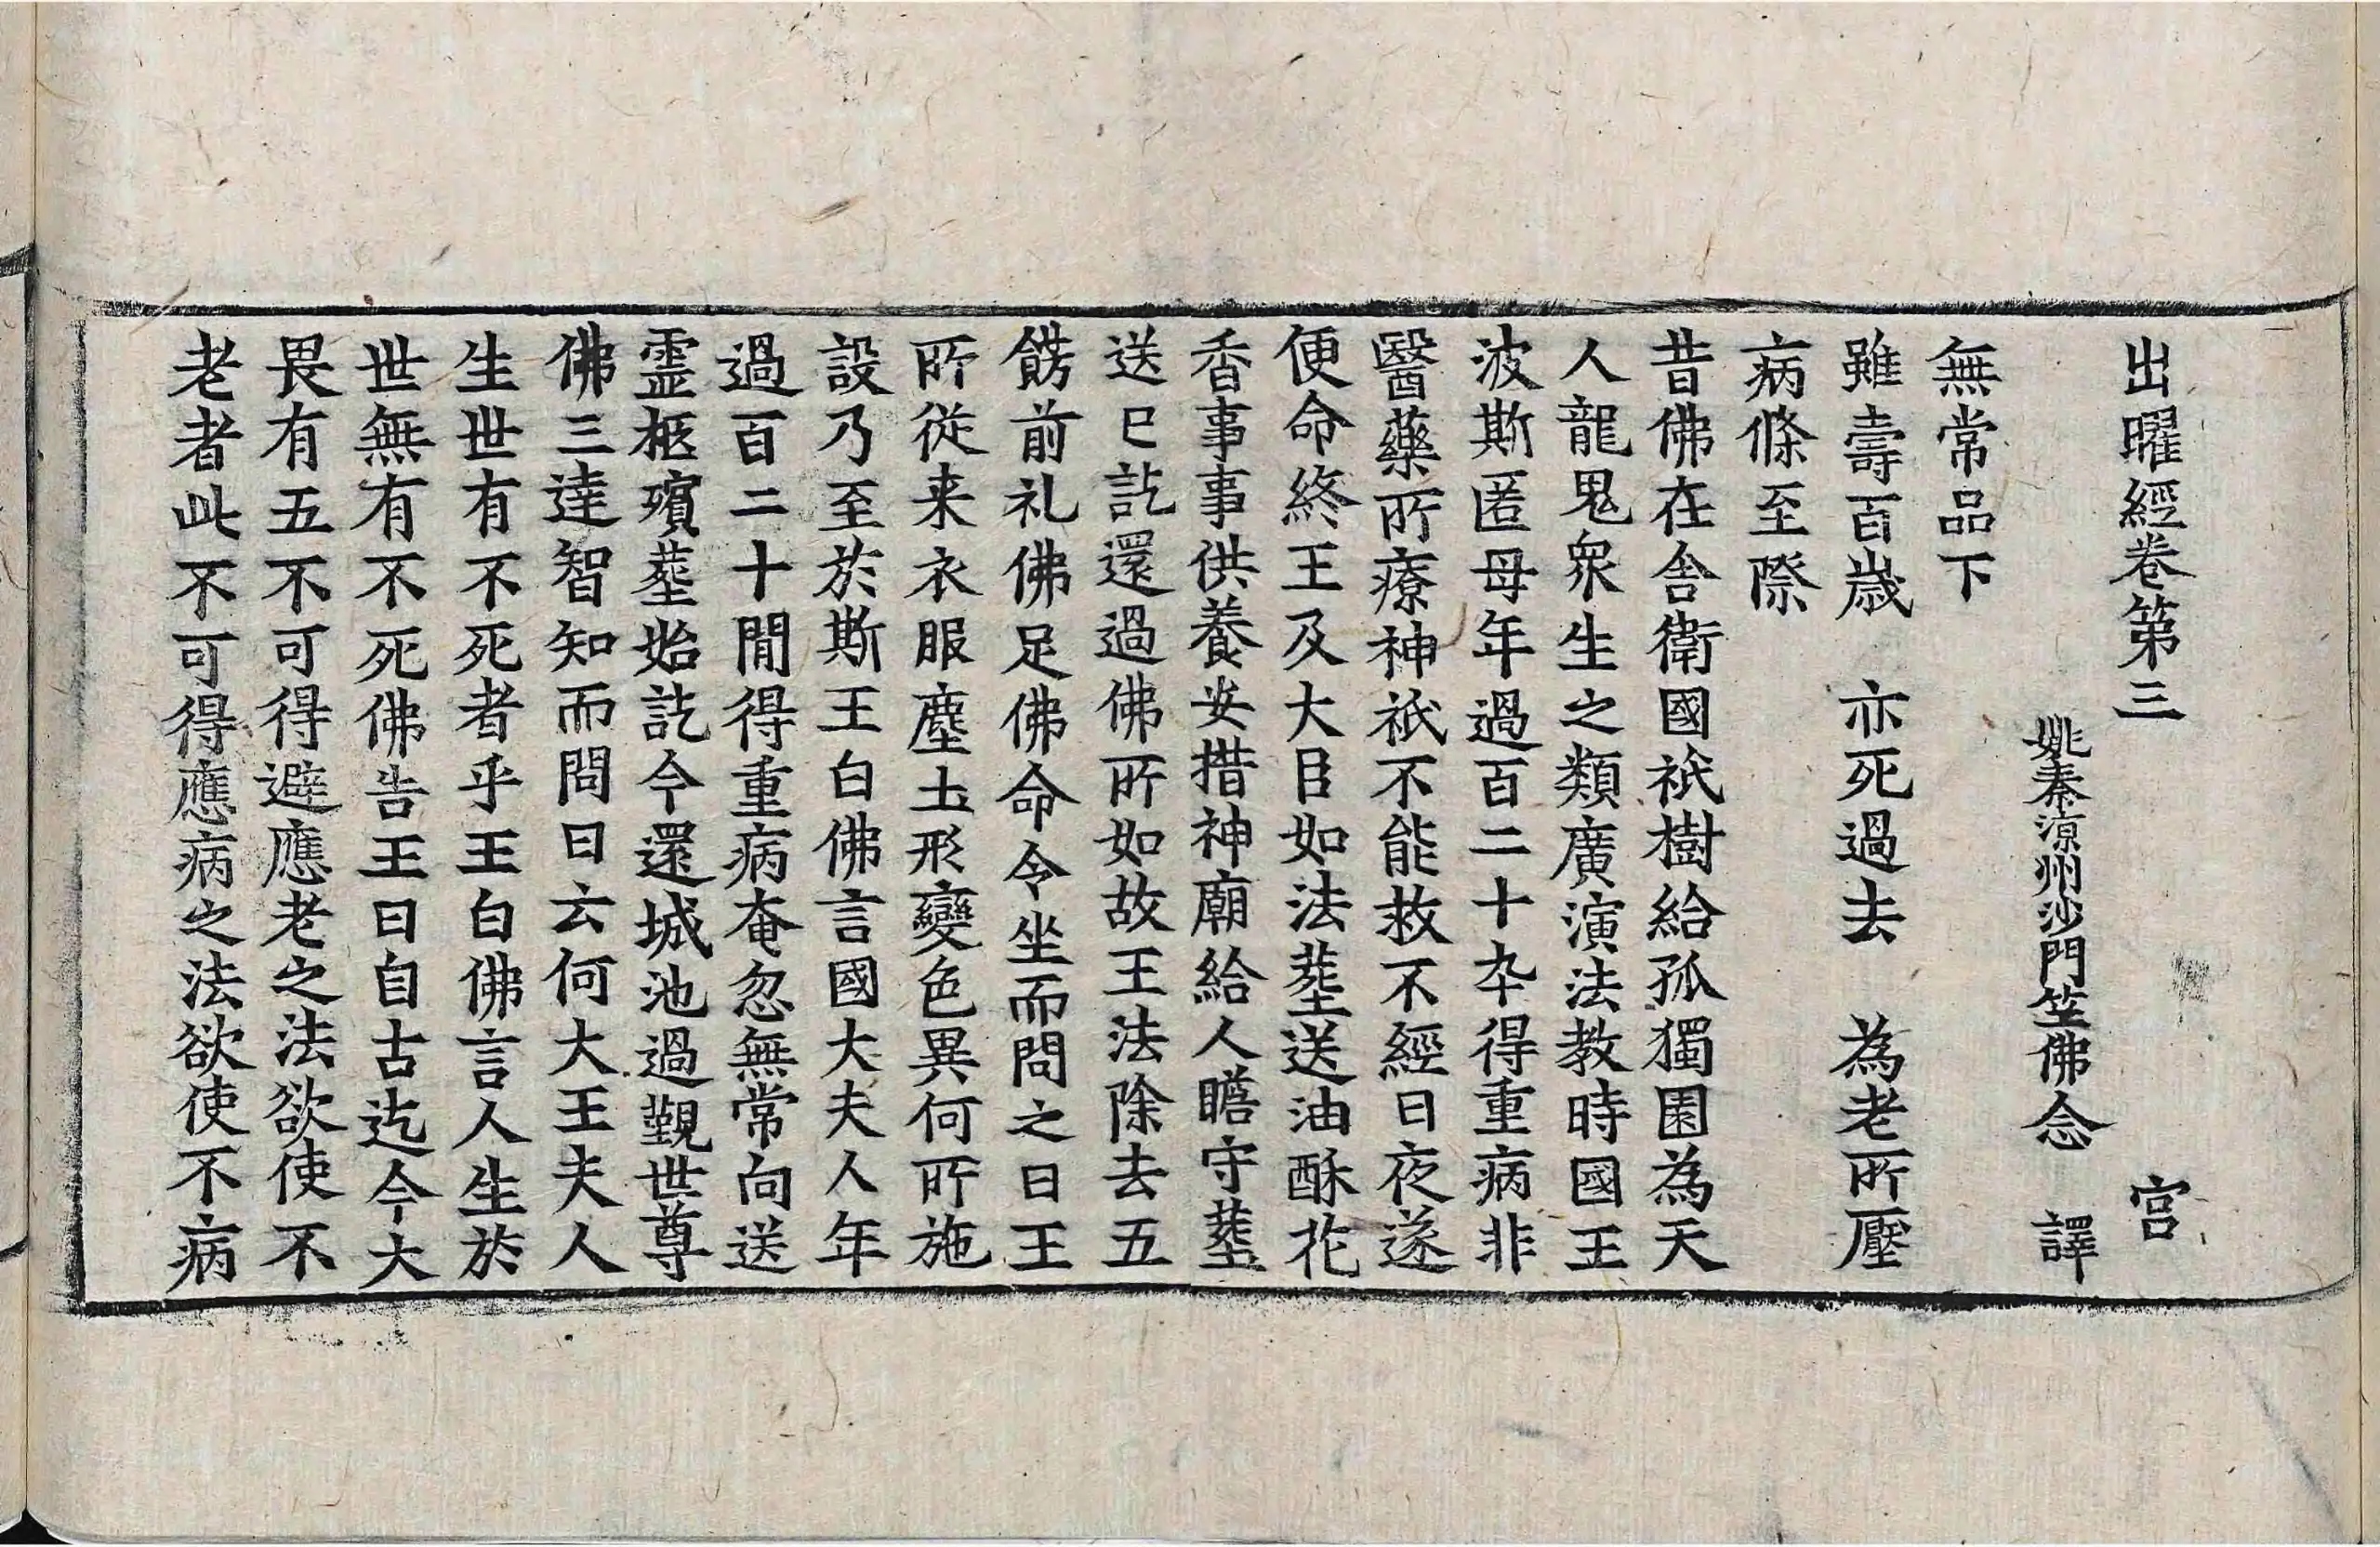 出曜經卷第三 宫
姚秦涼州沙門笁佛念 譯
無常品下
雖壽百歳 亦死過去 為老所壓
病條至際
昔佛在舎衛國祇樹給孤獨園為天
人龍鬼衆生之類廣演法教時國王
波斯匿母年過百二十卒得重病非
醫藥所療神祇不能救不經日夜遂
便命終王及大臣如法葬送油酥花
香事事供養安措神廟給人瞻守葬
送已訖還過佛所如故王法除去五
餝前礼佛足佛命令坐而問之曰王
所従来衣服塵土形變色異何所施
設乃至於斯王白佛言國大夫人年
過百二十間得重病奄忽無常向送
靈柩殯葬始訖今還城池過覲世尊
佛三達智知而問曰云何大王夫人
生世有不死者乎王白佛言人生於
世無有不死佛告王曰自古迄今大
畏有五不可得避應老之法欲使不
老者此不可得應病之法欲使不病